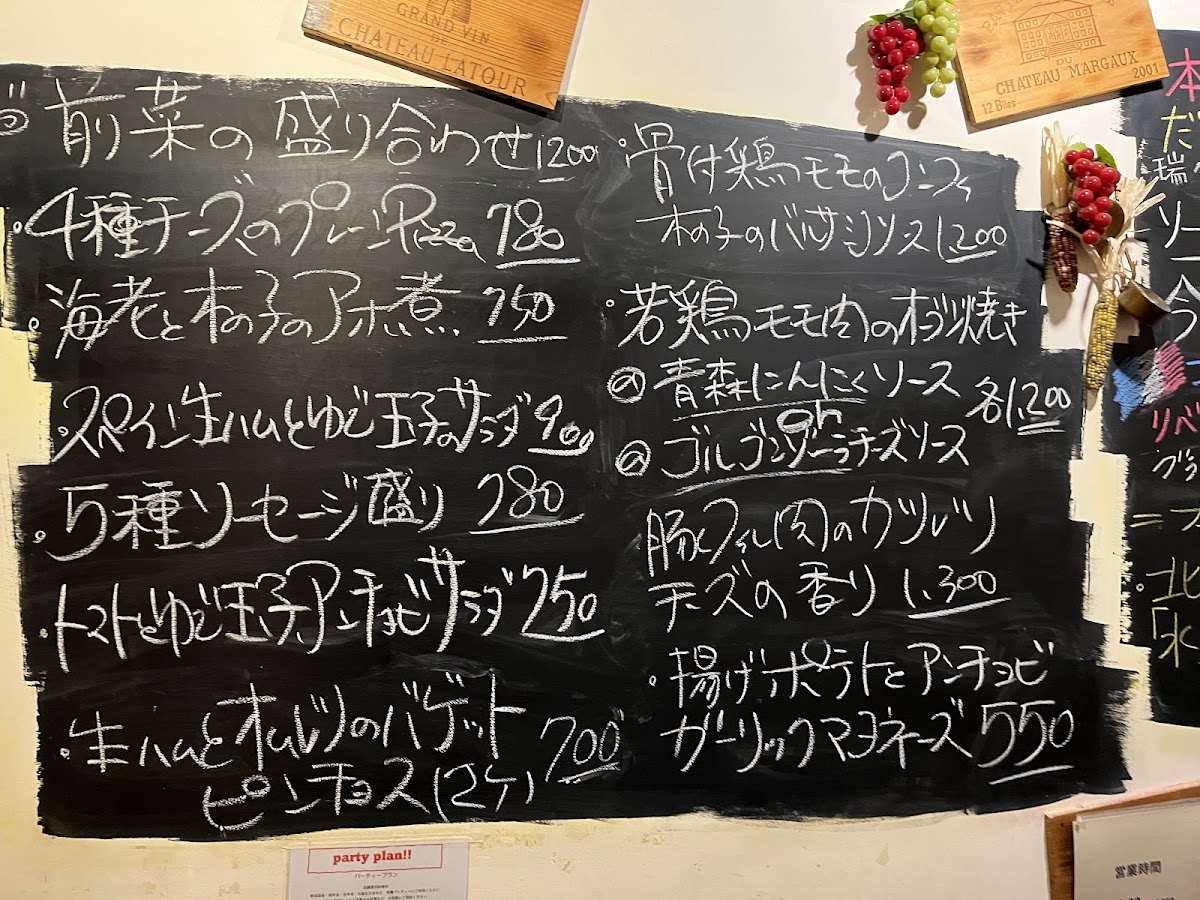 GRAND VIN
DE
CHATEAU LATOUR
DU
CHATEAU MARGAUX
12 Btles 2001
前菜の盛り合わせ 1200
・4種チーズのプレーンPizza 780
・海老と木の子のアホ煮 750
・スペイン生ハムとゆで玉子のサラダ 900
・5種ソーセージ盛り 780
・トマトとゆで玉子、アンチョビサラダ 750
・生ハムとオムレツのバゲット
ピンチョス(2ケ) 700
・骨付鶏モモのコンフィ
木の子のバルサミソース 1200
・若鶏モモ肉のオーブン焼き
青森にんにくソース
各1,200
or
ゴルゴンゾーラチーズソース
豚フィレ肉のカツレツ
チーズの香り 1,300
・揚げポテトとアンチョビ
ガーリックマヨネーズ 550
本
だ
瑞
ソー
今
リバ
・北
「水
party plan!!
パーティープラン
営業時間